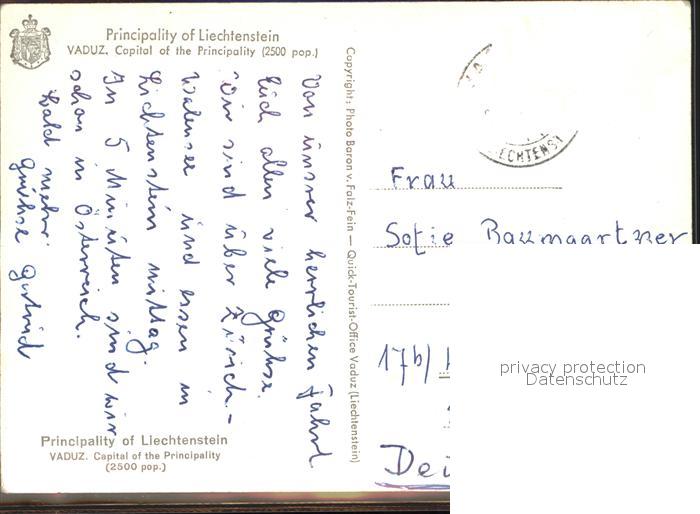 Principality of Liechtenstein
VADUZ. Capital of the Principality (2500 pop.)
Von unsrer herrlichen Fahrt
Euch allen viele Grüsse.
Wir sind über Zürich -
Walensee und essen in
Lichtenstein mittag.
In 5 Minuten sind wir
schon in Österreich.
bald mehr.
Grüsse Gertrud
Principality of Liechtenstein
VADUZ. Capital of the Principality
(2500 pop.)
Copyright: Photo Baron v. Falz-Fein — Quick-Tourist-Office Vaduz (Liechtenstein)
ECHTENST
Frau
Sofie Baumgartner
17b/
Dei
privacy protection
Datenschutz